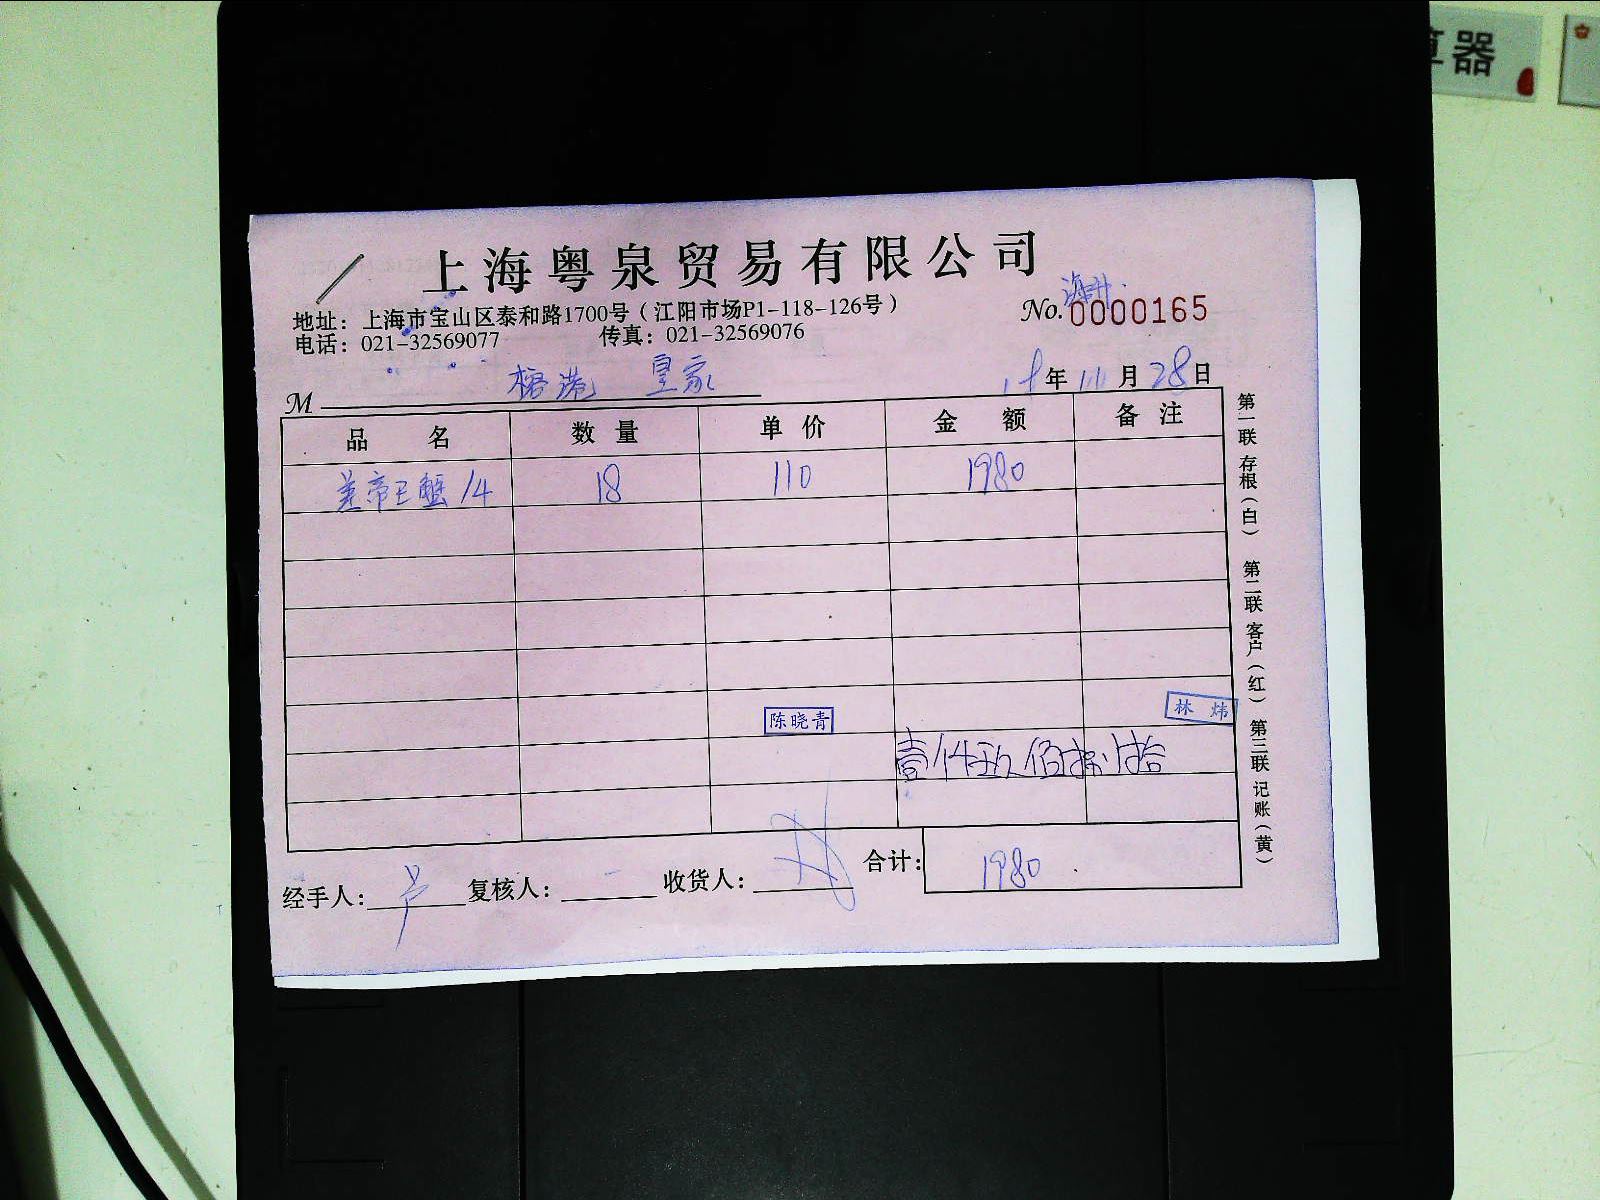 算器
上海粤泉贸易有限公司
地址：上海市宝山区泰和路1700号（江阳市场P1-118-126号）
No.0000165
电话：021-32569077 传真：021-32569076
M 皇家
年 11 月 28 日
品名 数量 单价 金额 备注
帝王蟹/4 18 110 1980
陈晓青
林炜
壹仟玖佰捌拾
合计：1980
经手人： 复核人： 收货人：
第一联存根（白） 第二联客户（红） 第三联记账（黄）